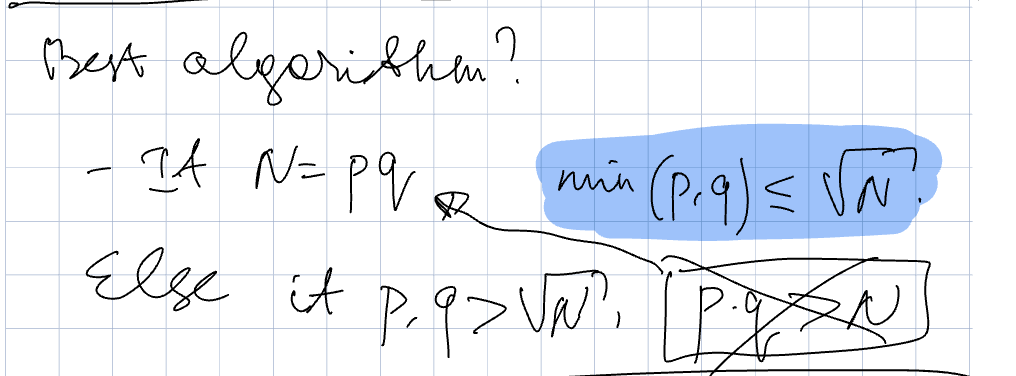 Best algorithm?
- If N = pq min(p,q) ≤ √N.
Else if p,q > √N, p·q > N